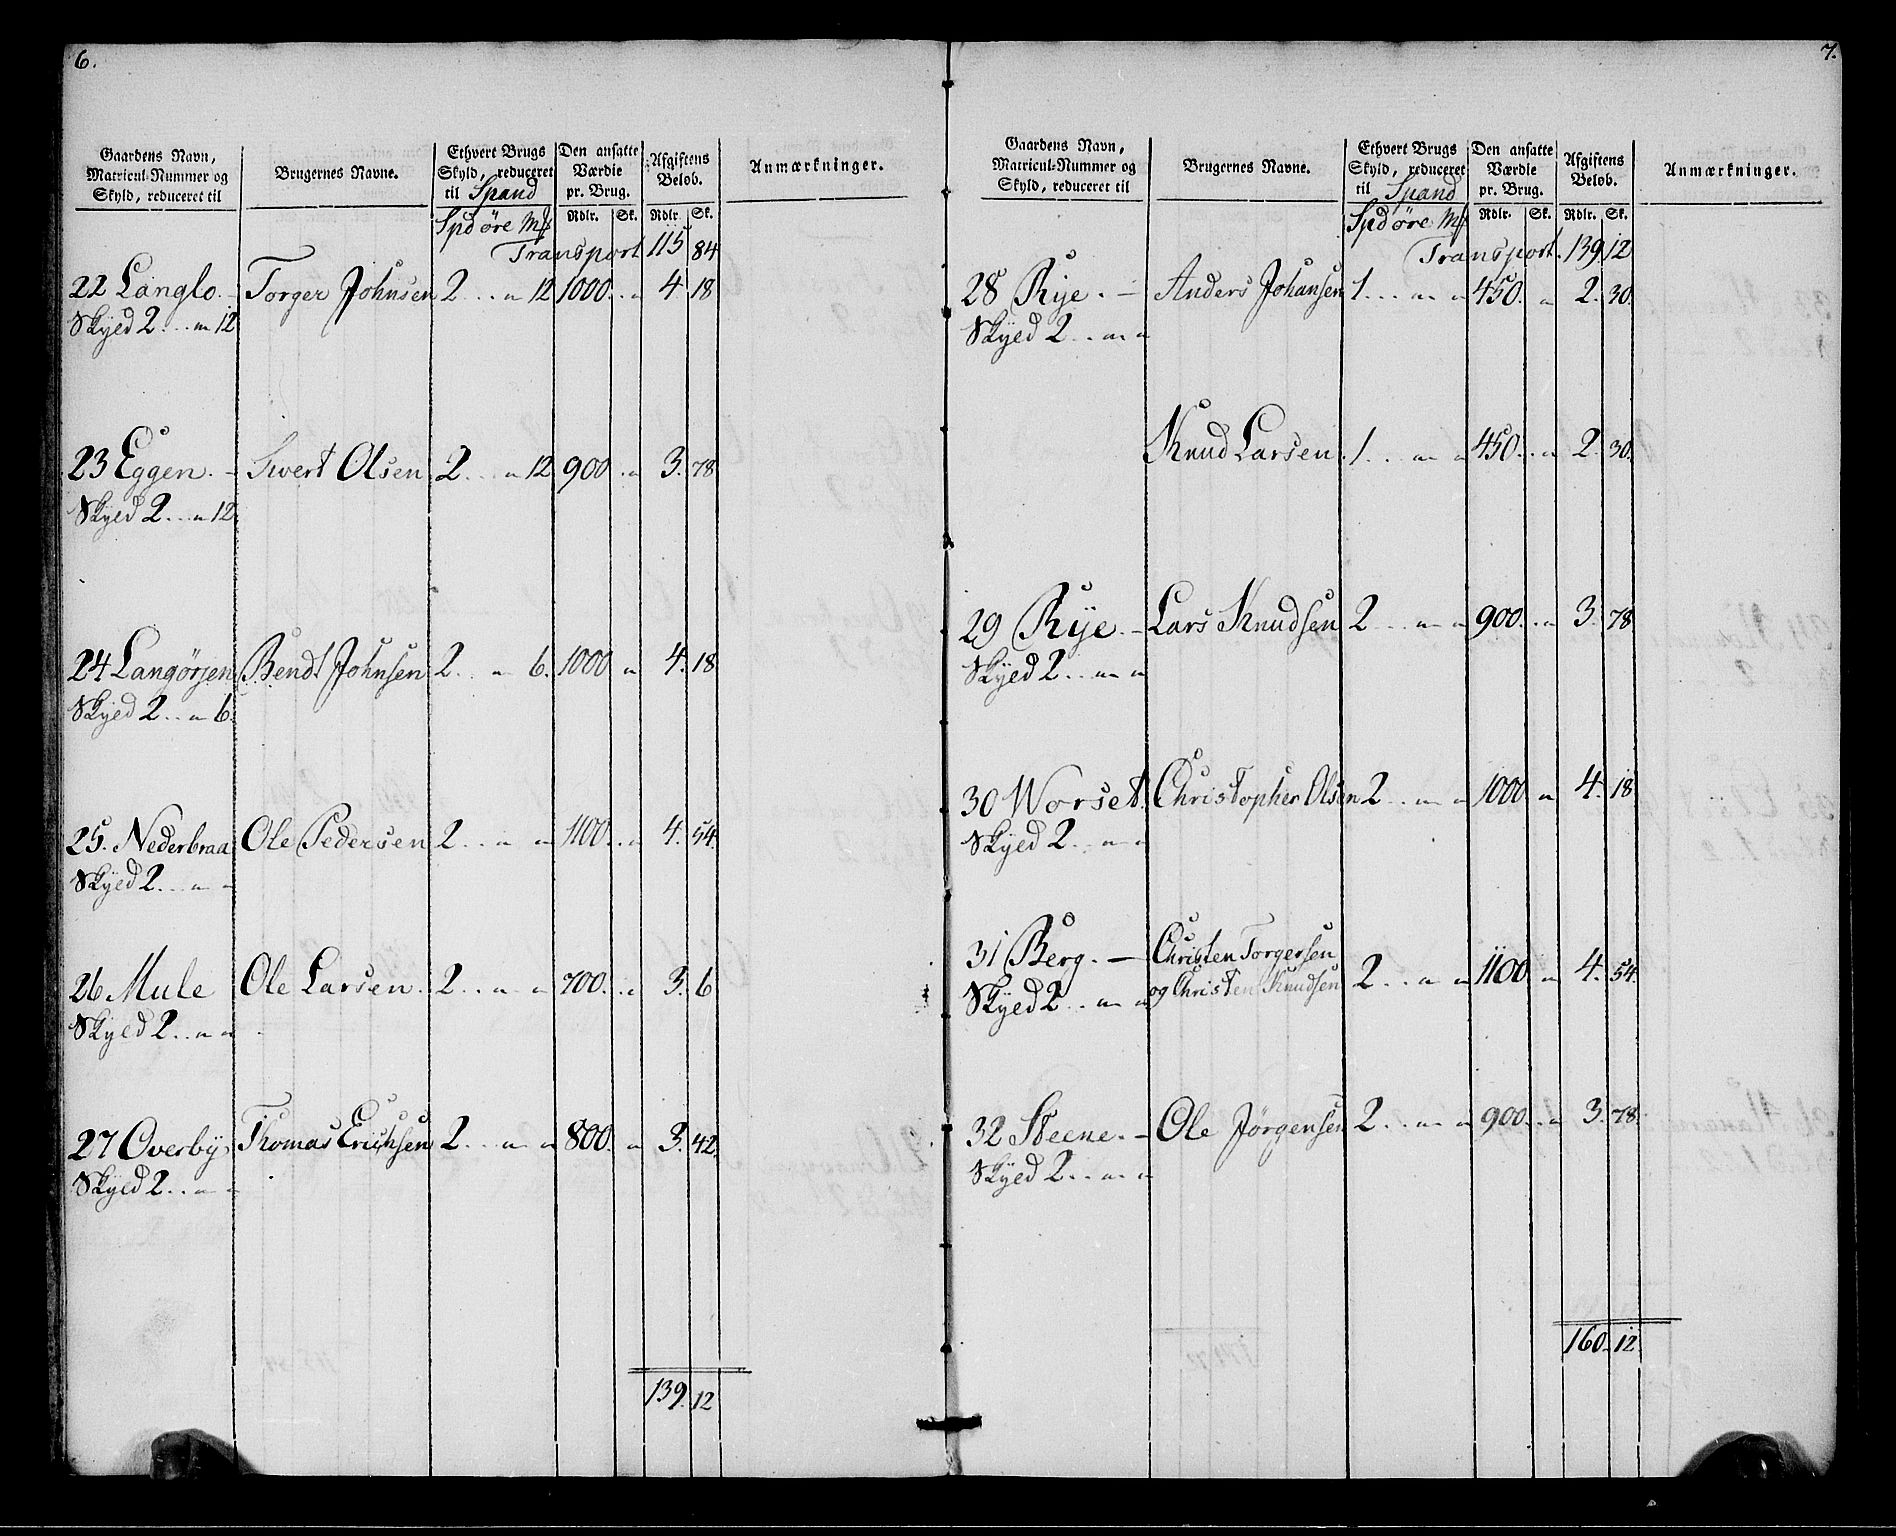 6.
Gaardens Navn, Matricul-Nummer og Skyld, reduceret til
Brugernes Navne.
Ethvert Brugs Skyld, reduceret til Spand
Den ansatte Værdie pr. Brug.
Afgiftens Beløb.
Anmærkninger.
Spd øre Mß Rdlr. Sk. Rdlr. Sk.
Transport 115 84
22 Langlo. – Torger Johnsen 2 . . „ 12 1000 . „ 4 18
Skyld 2 . . „ 12
23 Eggen. – Sivert Olsen 2 . . „ 12 900 . „ 3. 78
Skyld 2 . . „ 12
24 Langørjen Bendt Johnsen 2 . . „ 6. 1000 „ 4. 18
Skyld 2 . . „ 6.
25. Nederbraa Ole Pedersen 2 . . „ „ 1100. . „ 4. 54.
Skyld 2 . . „ „
26 Mule Ole Larsen. 2 . . „ „ 700. . „ 3. 6
Skyld 2 . . „ „
27 Overby Thomas Erichsen 2 . . „ „ 800. „ 3. 42.
Skyld 2 . . „ „
139. 12
7.
Gaardens Navn, Matricul-Nummer og Skyld, reduceret til
Brugernes Navne.
Ethvert Brugs Skyld, reduceret til Spand
Den ansatte Værdie pr. Brug.
Afgiftens Beløb.
Anmærkninger.
Spd øre Mß Rdlr. Sk. Rdlr. Sk.
Transport. 139. 12
28 Rye. – Anders Johansen 1 . . „ „ 450. „ 2. 30.
Skyld 2 . . „ „
Knud Larsen 1 . . „ „ 450. . „ 2. 30.
29 Rye. – Lars Knudsen 2 . . „ „ 900. . „ 3. 78
Skyld 2 . . „ „
30 Worset. Christopher Olsen 2 . . „ „ 1000 „ 4. 18
Skyld 2 . . „ „
31 Berg. – Christen Torgersen
og Christen Knudsen 2 . . „ „ 1100 „ 4. 54.
Skyld 2 . . „ „
32 Steene. – Ole Jørgensen 2 . . „ „ 900. . „ 3. 78.
Skyld 2 . . „ „
160. 12